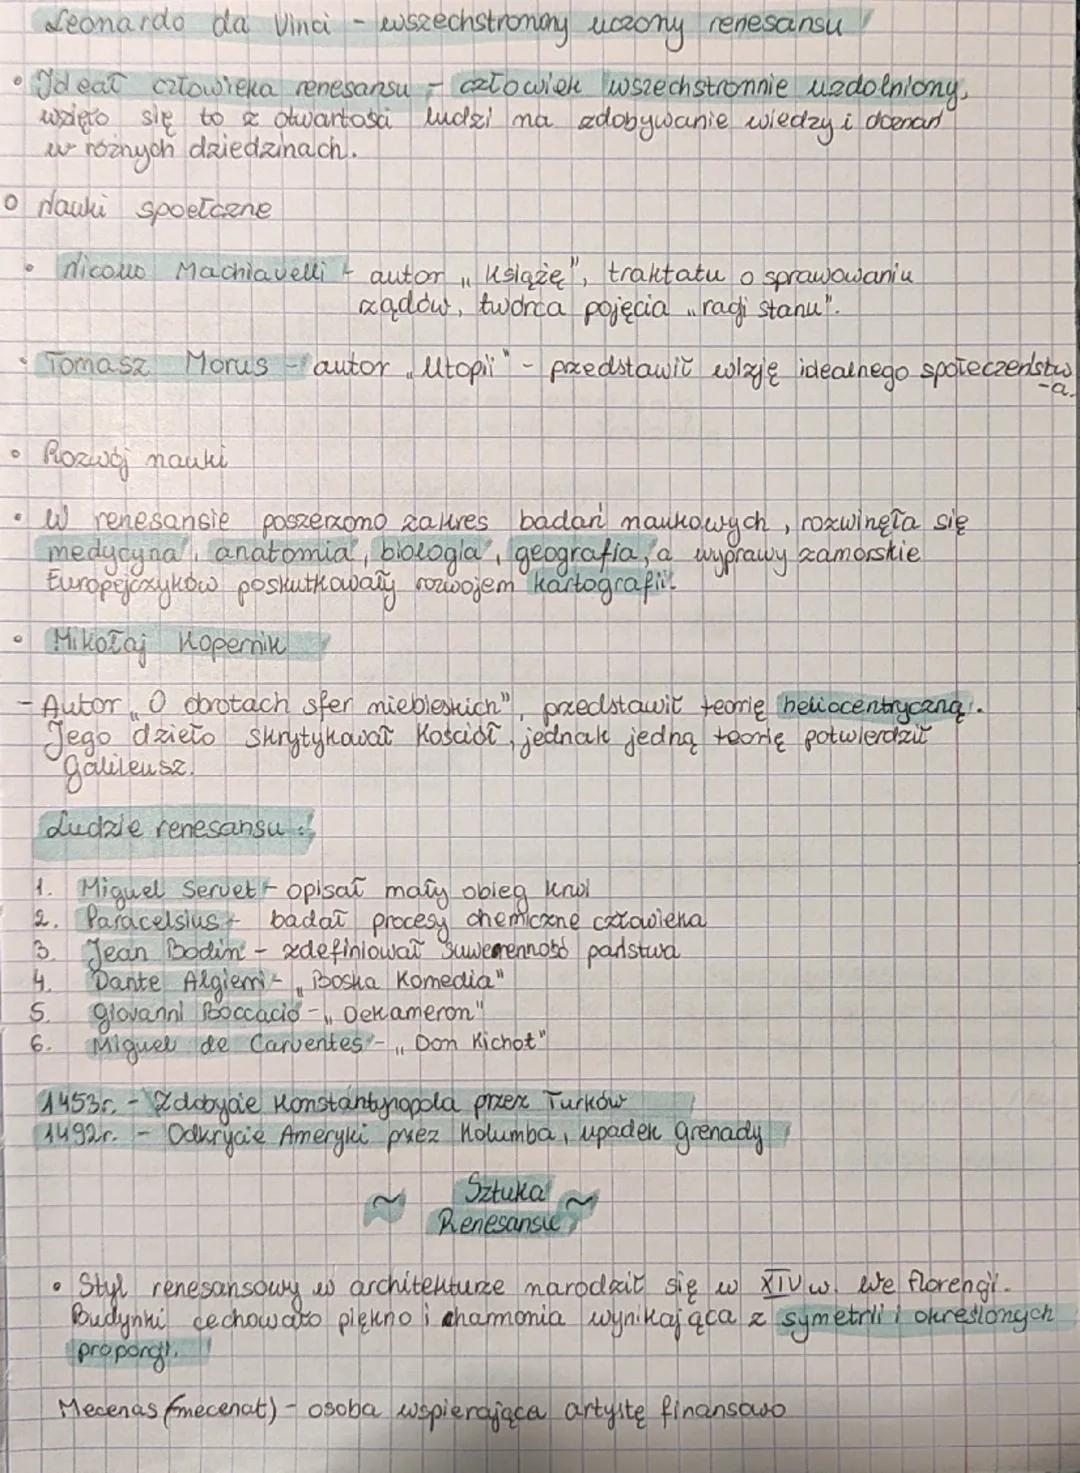 Leonardo da Vinci - wszechstronny uczony renesansu
• Ideał człowieka renesansu - człowiek wszechstronnie uzdolniony,
wzięło się to z otwartości ludzi na zdobywanie wiedzy i doznań
w różnych dziedzinach.
o Nauki społeczne
• Nicollo Machiavelli - autor „Książę", traktatu o sprawowaniu
rządów, twórca pojęcia „racji stanu".
• Tomasz Morus - autor „Utopii" - przedstawił wizję idealnego społeczeństw
-a.
• Rozwój nauki
• W renesansie poszerzono zakres badań naukowych, rozwinęła się
medycyna, anatomia, biologia, geografia, a wyprawy zamorskie
Europejczyków poskutkowały rozwojem kartografii.
• Mikołaj Kopernik
- Autor „O obrotach sfer niebieskich", przedstawił teorię heliocentryczną.
Jego dzieło skrytykował Kościół, jednak jedną teorię potwierdził
Galileusz.
Ludzie renesansu:
1. Miguel Servet - opisał mały obieg krwi
2. Paracelsius - badał procesy chemiczne człowieka
3. Jean Bodin - zdefiniował suwerenność państwa
4. Dante Algieri - „Boska Komedia"
5. Giovanni Boccacio - „Dekameron"
6. Miguel de Carventes - „Don Kichot"
1453r. - Zdobycie Konstantynopola przez Turków
1492r. - Odkrycie Ameryki przez Kolumba, upadek Grenady
~ Sztuka ~
Renesansie
• Styl renesansowy w architekturze narodził się w XIV w. we florencji.
Budynki cechowało piękno i harmonia wynikająca z symetrii i określonych
proporcji.
Mecenas (mecenat) - osoba wspierająca artystę finansowo